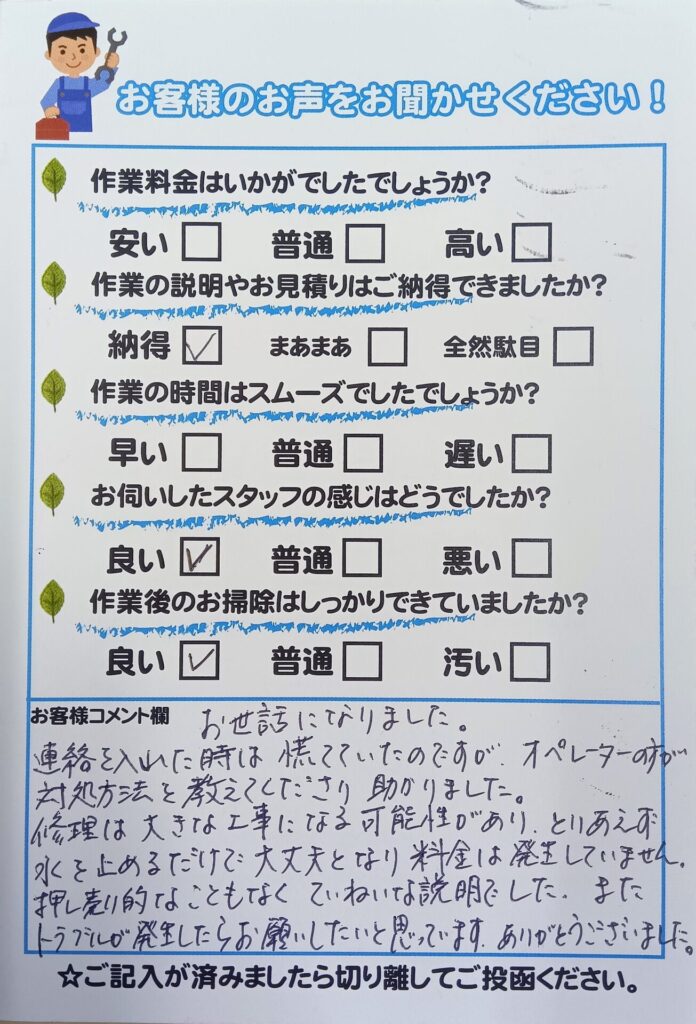 お客様のお声をお聞かせください！
作業料金はいかがでしたでしょうか？
安い □ 普通 □ 高い □
作業の説明やお見積りはご納得できましたか？
納得 ☑ まあまあ □ 全然駄目 □
作業の時間はスムーズでしたでしょうか？
早い □ 普通 □ 遅い □
お伺いしたスタッフの感じはどうでしたか？
良い ☑ 普通 □ 悪い □
作業後のお掃除はしっかりできていましたか？
良い ☑ 普通 □ 汚い □
お客様コメント欄 お世話になりました。
連絡を入れた時は慌てていたのですが、オペレーターの方が
対処方法を教えてくださり助かりました。
修理は大きな工事になる可能性があり、とりあえず
水を止めるだけで大丈夫となり料金は発生していません。
押し売り的なこともなくていねいな説明でした。また
トラブルが発生したらお願いしたいと思っています。ありがとうございました。
☆ご記入が済みましたら切り離してご投函ください。